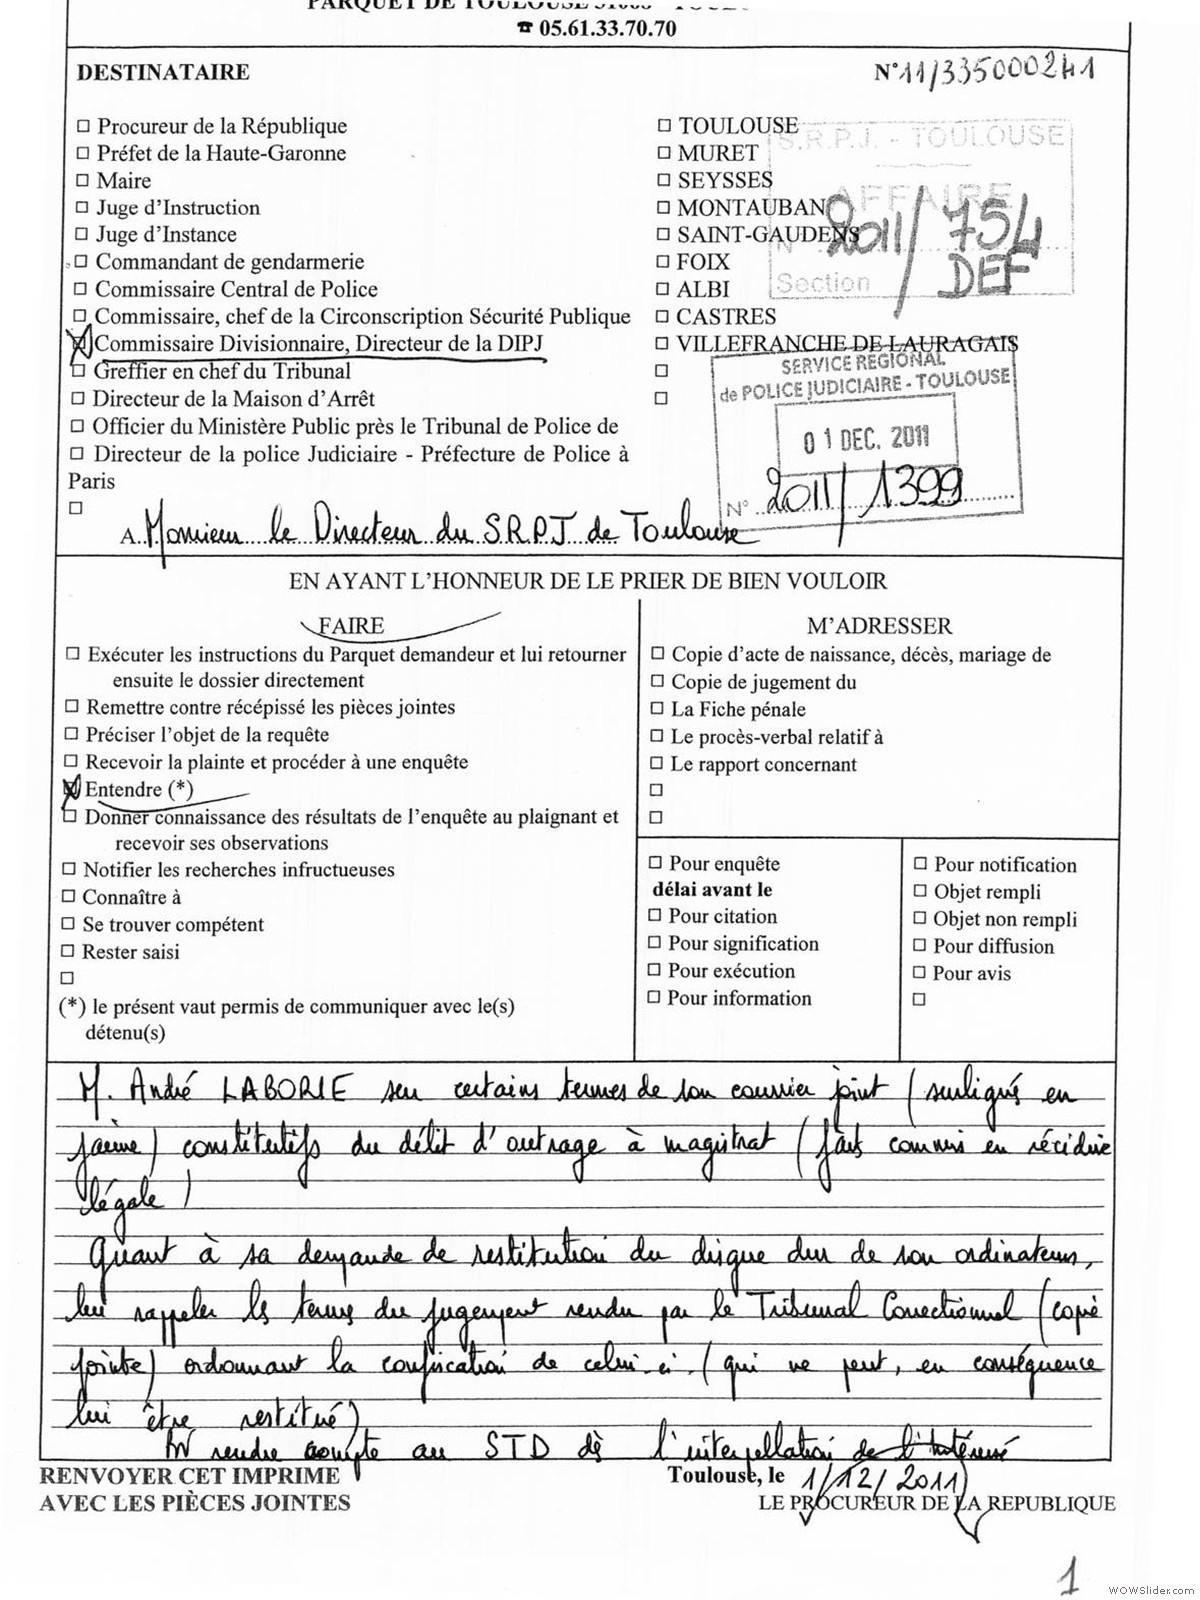 PARQUET DE TOULOUSE
☎ 05.61.33.70.70
DESTINATAIRE
N° 11/335000241
☐ Procureur de la République
☐ Préfet de la Haute-Garonne
☐ Maire
☐ Juge d’Instruction
☐ Juge d’Instance
☐ Commandant de gendarmerie
☐ Commissaire Central de Police
☐ Commissaire, chef de la Circonscription Sécurité Publique
☒ Commissaire Divisionnaire, Directeur de la DIPJ
☐ Greffier en chef du Tribunal
☐ Directeur de la Maison d’Arrêt
☐ Officier du Ministère Public près le Tribunal de Police de
☐ Directeur de la police Judiciaire - Préfecture de Police à
Paris
☐
☐ TOULOUSE
☐ MURET
☐ SEYSSES
☐ MONTAUBAN
☐ SAINT-GAUDENS
☐ FOIX
☐ ALBI
☐ CASTRES
☐ VILLEFRANCHE DE LAURAGAIS
☐
☐
S.R.P.J. - TOULOUSE
AFFAIRE
N° 2011/754
Section DEF
SERVICE REGIONAL
de POLICE JUDICIAIRE - TOULOUSE
01 DEC. 2011
N° 2011/1399
A Monsieur le Directeur du S.R.P.J de Toulouse
EN AYANT L’HONNEUR DE LE PRIER DE BIEN VOULOIR
FAIRE
☐ Exécuter les instructions du Parquet demandeur et lui retourner
ensuite le dossier directement
☐ Remettre contre récépissé les pièces jointes
☐ Préciser l’objet de la requête
☐ Recevoir la plainte et procéder à une enquête
☒ Entendre (*)
☐ Donner connaissance des résultats de l’enquête au plaignant et
recevoir ses observations
☐ Notifier les recherches infructueuses
☐ Connaître à
☐ Se trouver compétent
☐ Rester saisi
☐
(*) le présent vaut permis de communiquer avec le(s)
détenu(s)
M’ADRESSER
☐ Copie d’acte de naissance, décès, mariage de
☐ Copie de jugement du
☐ La Fiche pénale
☐ Le procès-verbal relatif à
☐ Le rapport concernant
☐
☐
☐ Pour enquête
délai avant le
☐ Pour citation
☐ Pour signification
☐ Pour exécution
☐ Pour information
☐ Pour notification
☐ Objet rempli
☐ Objet non rempli
☐ Pour diffusion
☐ Pour avis
☐
M. André LABORIE sur certains termes de son courrier joint (surligné en
jaune) constitutifs du délit d'outrage à magistrat (faits commis en récidive
légale)
Quant à sa demande de restitution du disque dur de son ordinateur,
lui rappeler les termes du jugement rendu par le Tribunal Correctionnel (copie
jointe) ordonnant la confiscation de celui-ci (qui ne peut, en conséquence
lui être restitué)
M' rendre compte au STD dès l'interpellation de l'intéressé
RENVOYER CET IMPRIME
AVEC LES PIÈCES JOINTES
Toulouse, le 1/12/2011
LE PROCUREUR DE LA REPUBLIQUE
1
WOWSlider.com